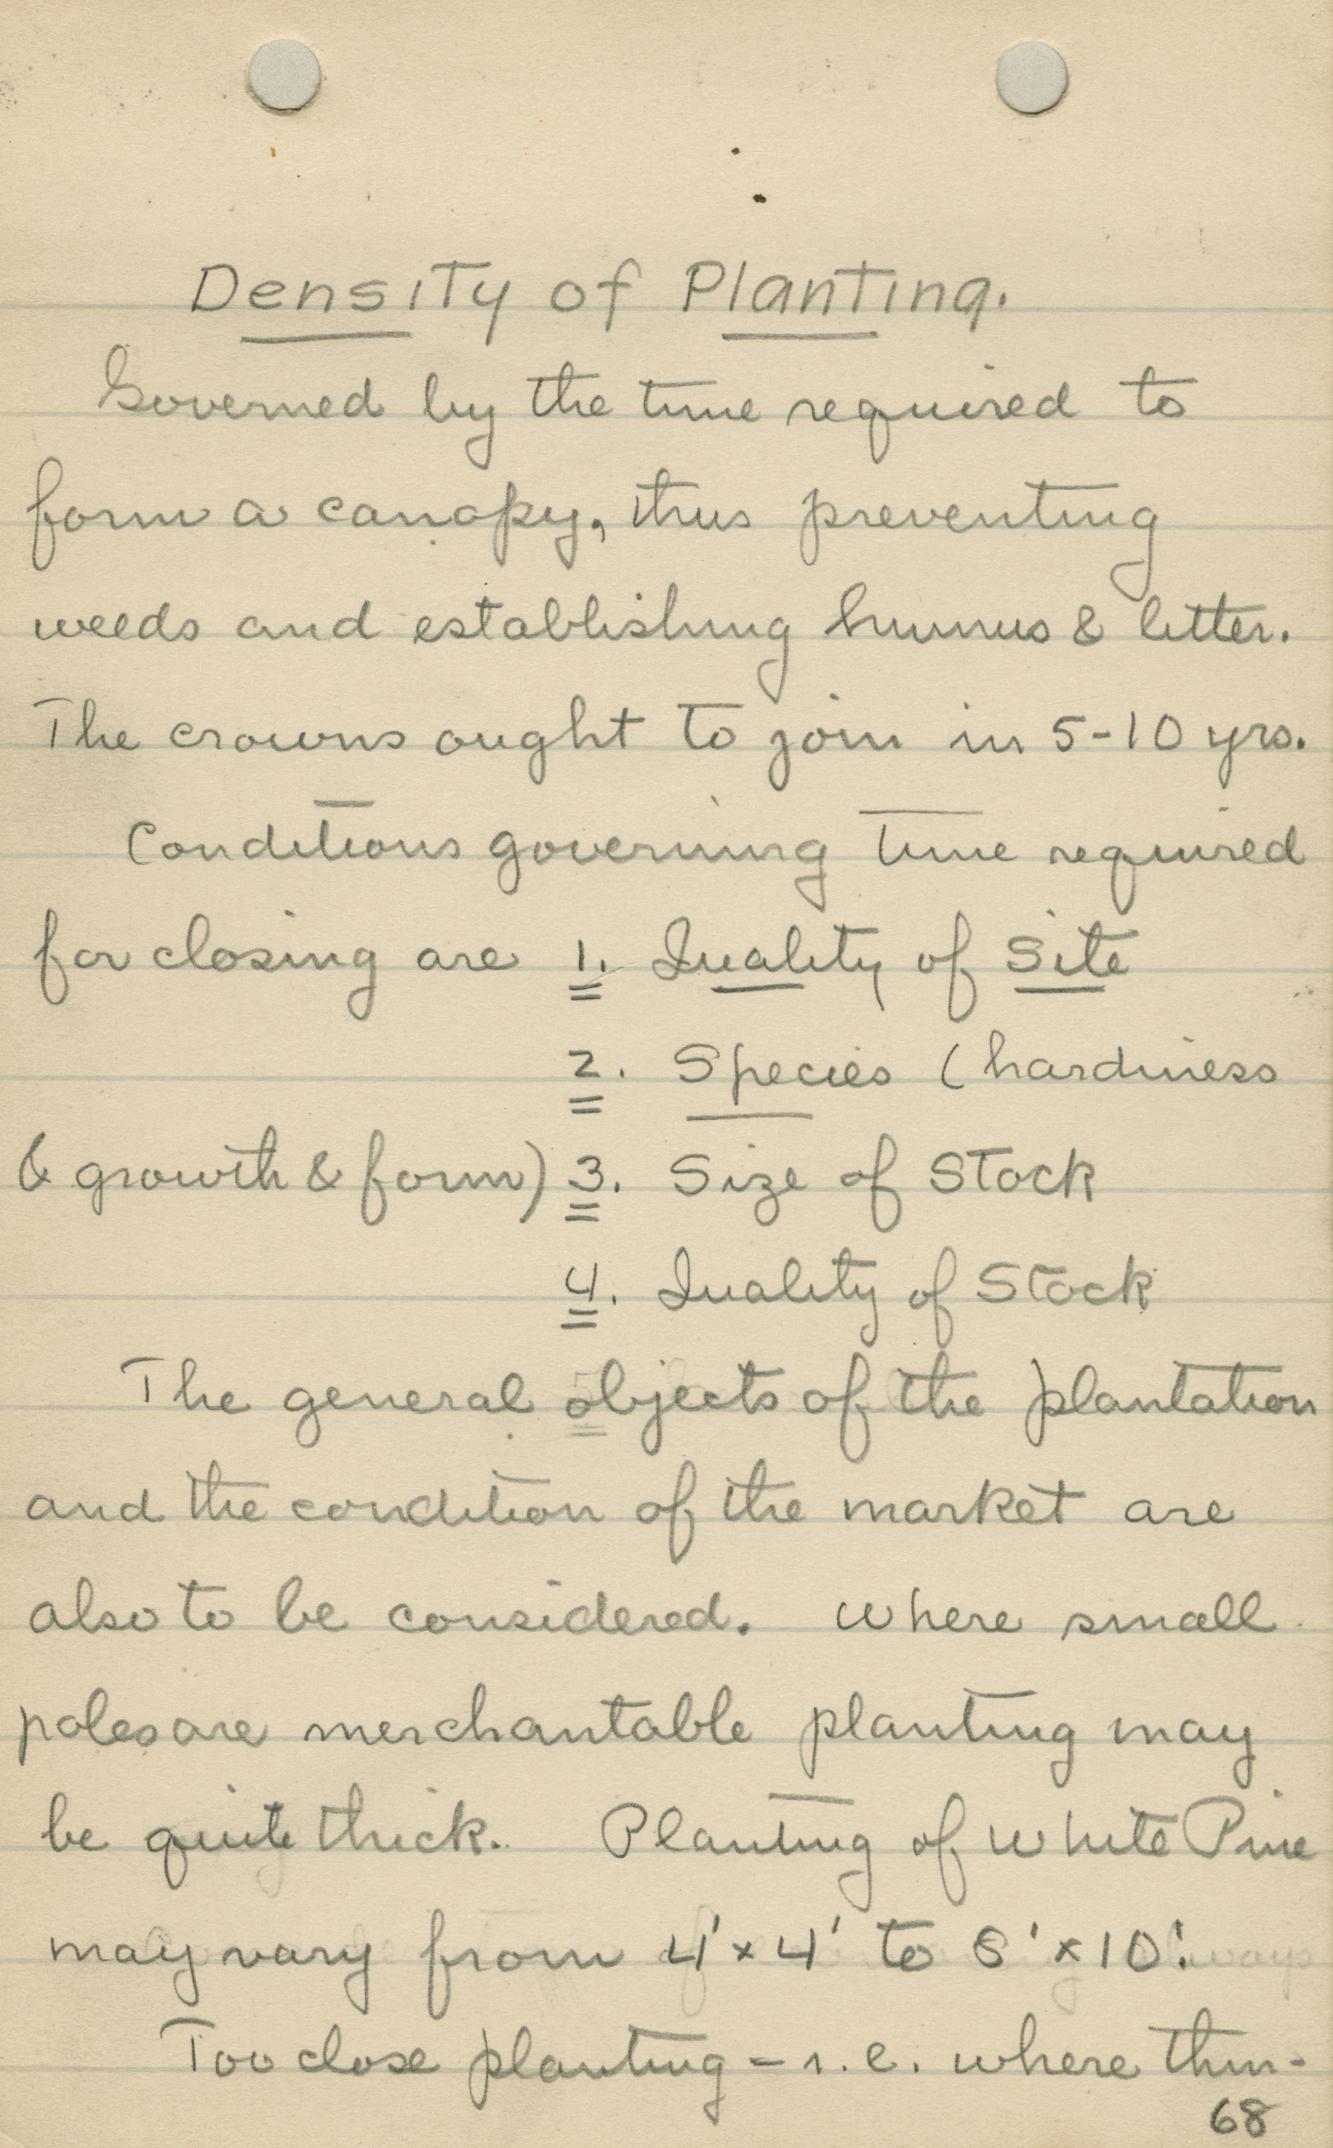 Density of Planting.
Governed by the time required to
form a canopy, thus preventing
weeds and establishing humus & litter.
The crowns ought to join in 5-10 yrs.
Conditions governing time required
for closing are 1. Quality of Site
2. Species (hardiness
& growth & form) 3. Size of Stock
4. Quality of Stock
The general objects of the plantation
and the condition of the market are
also to be considered. Where small
poles are merchantable planting may
be quite thick. Planting of White Pine
may vary from 4'x4' to 6'x10'.
Too close planting - i.e. where thin-
68